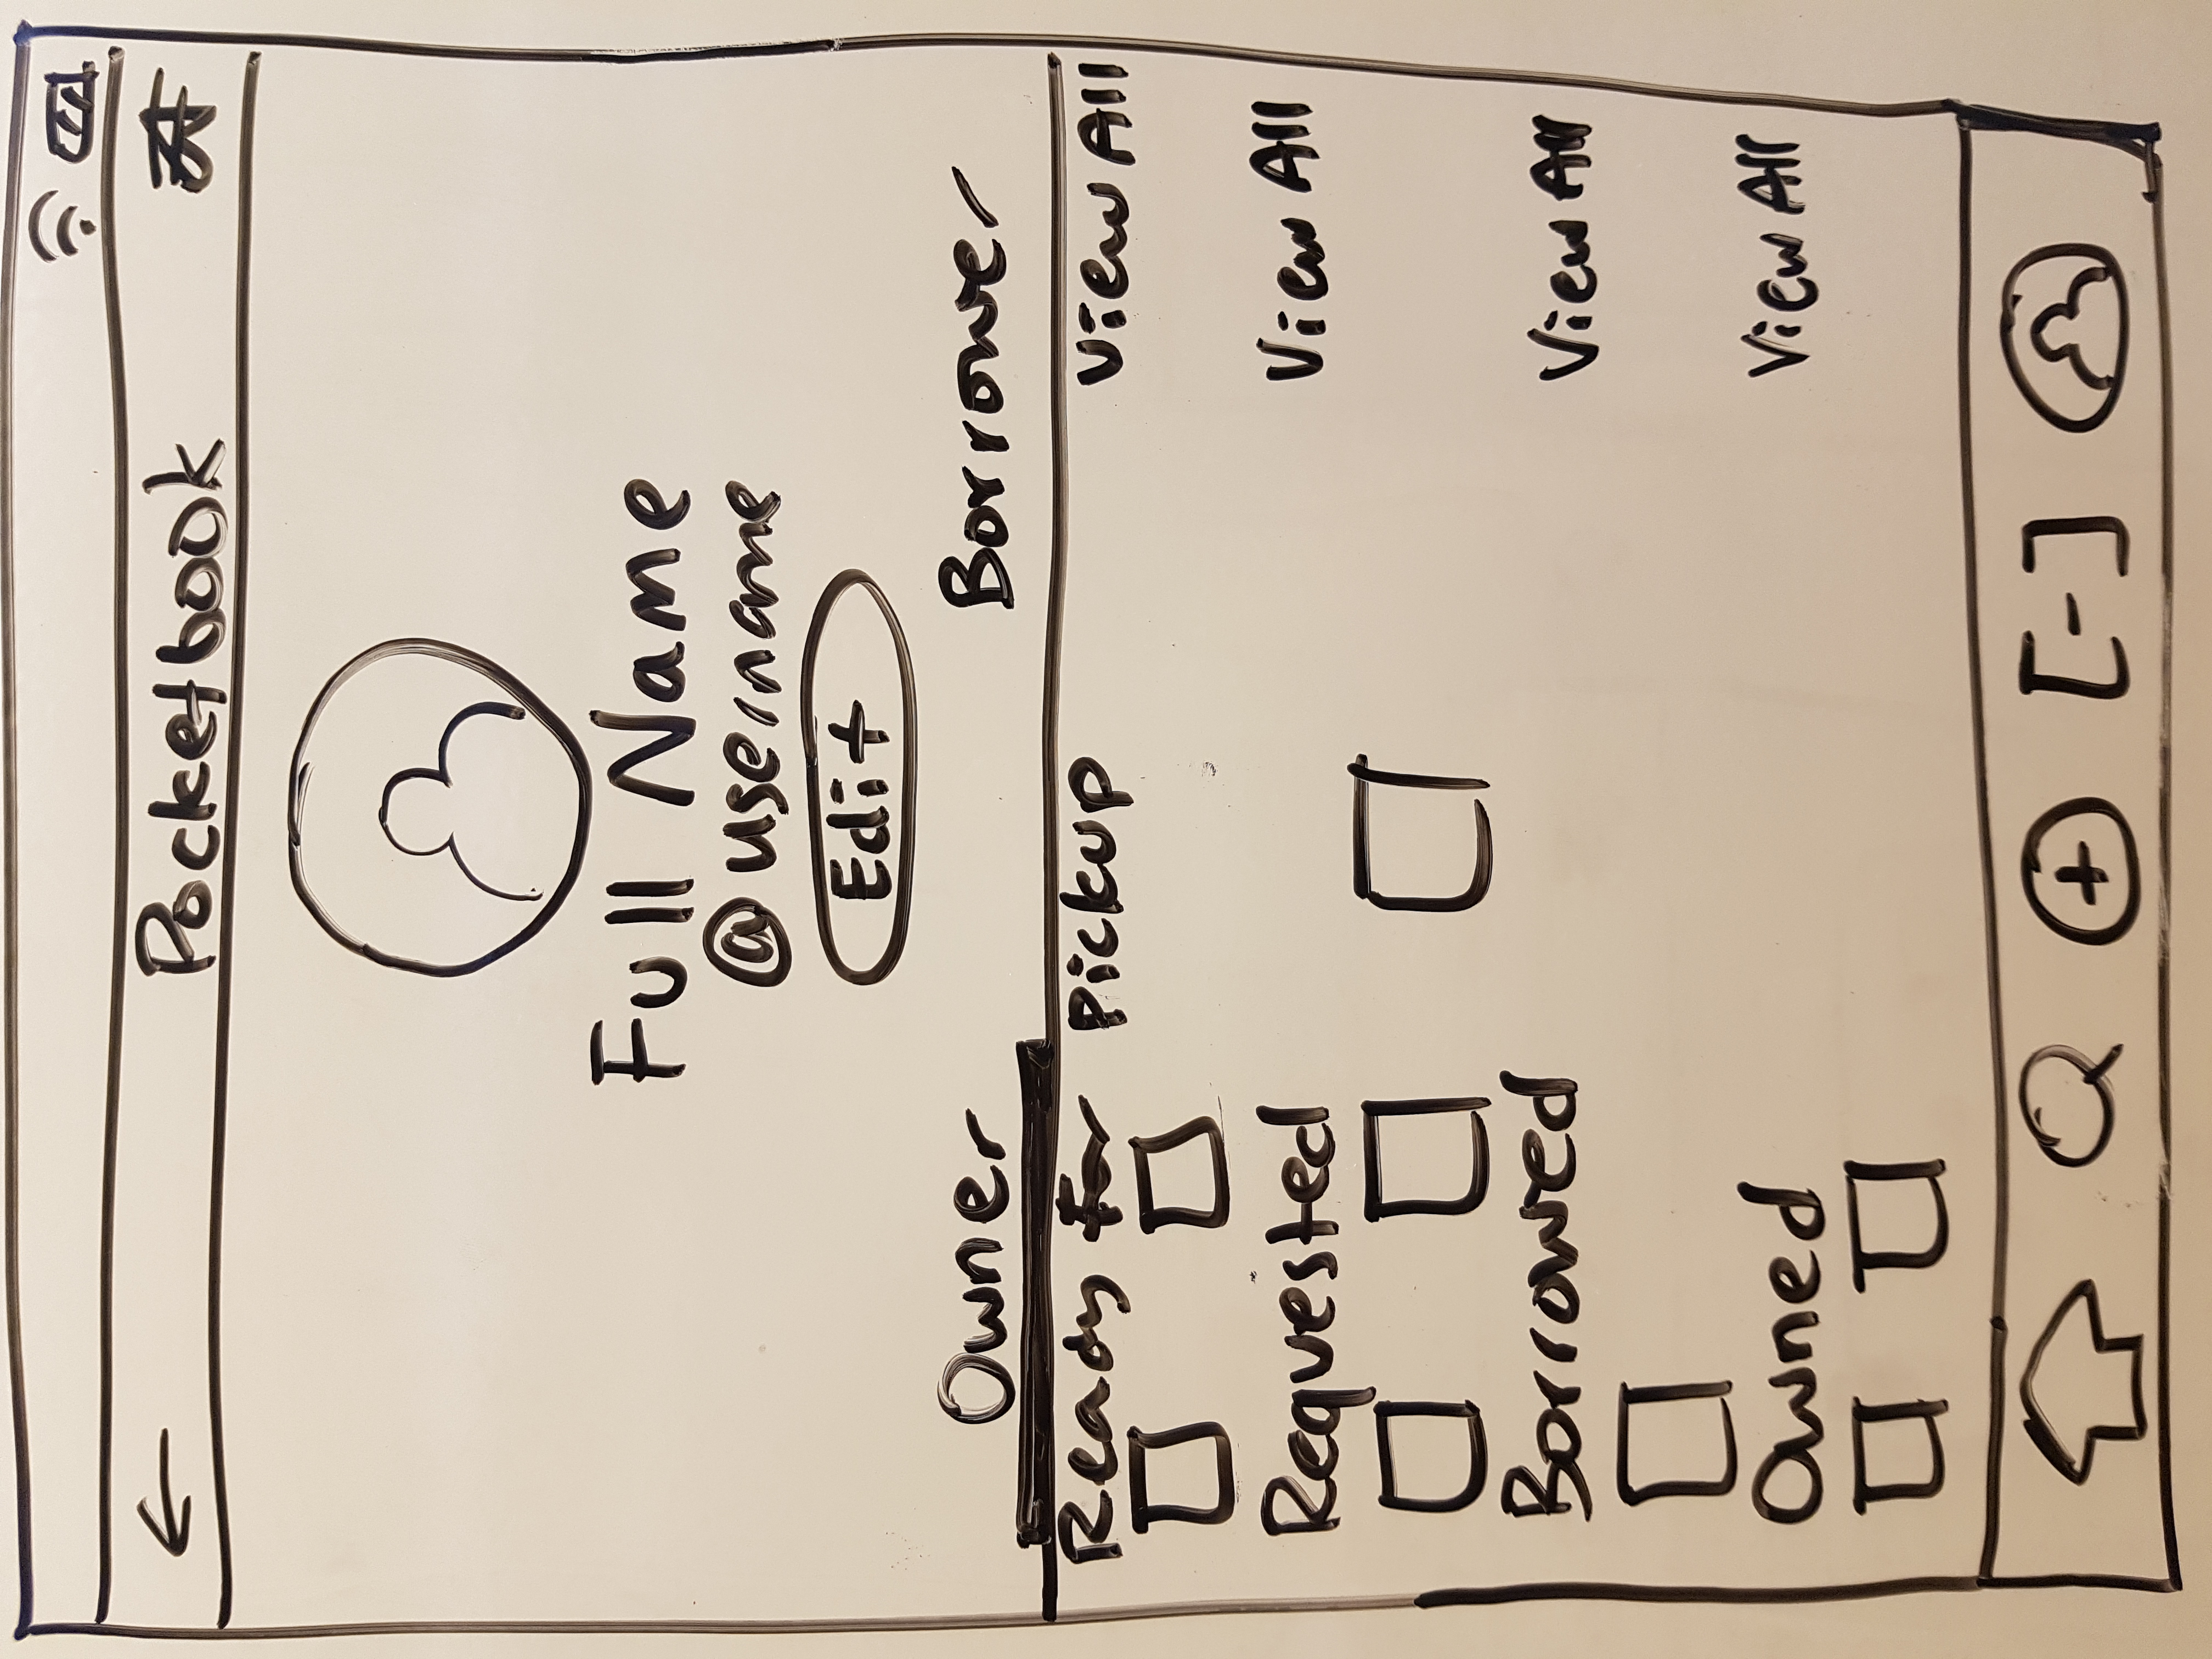 Pocketbook
Full Name
@username
Edit
Owner Borrower
Ready For Pickup View All
Requested View All
Borrowed View All
Owned View All